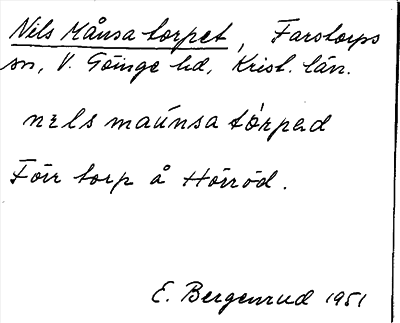 Nils Månsa torpet, Farstorps
sn, V. Göinge hd, Krist. län.
nɪls maúnsa tórpɘd
För torp å Hörröd.
E. Bergenrud 1951